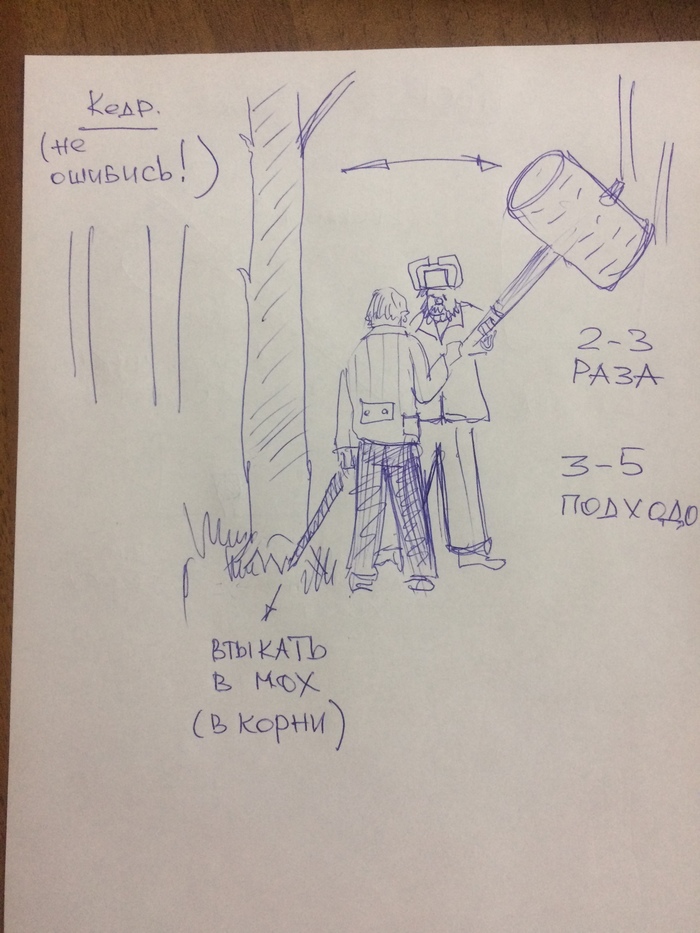 Кедр.
(не
ошибись!)
2-3
РАЗА
3-5
ПОДХОДО
ВТЫКАТЬ
В МОХ
(В КОРНИ)